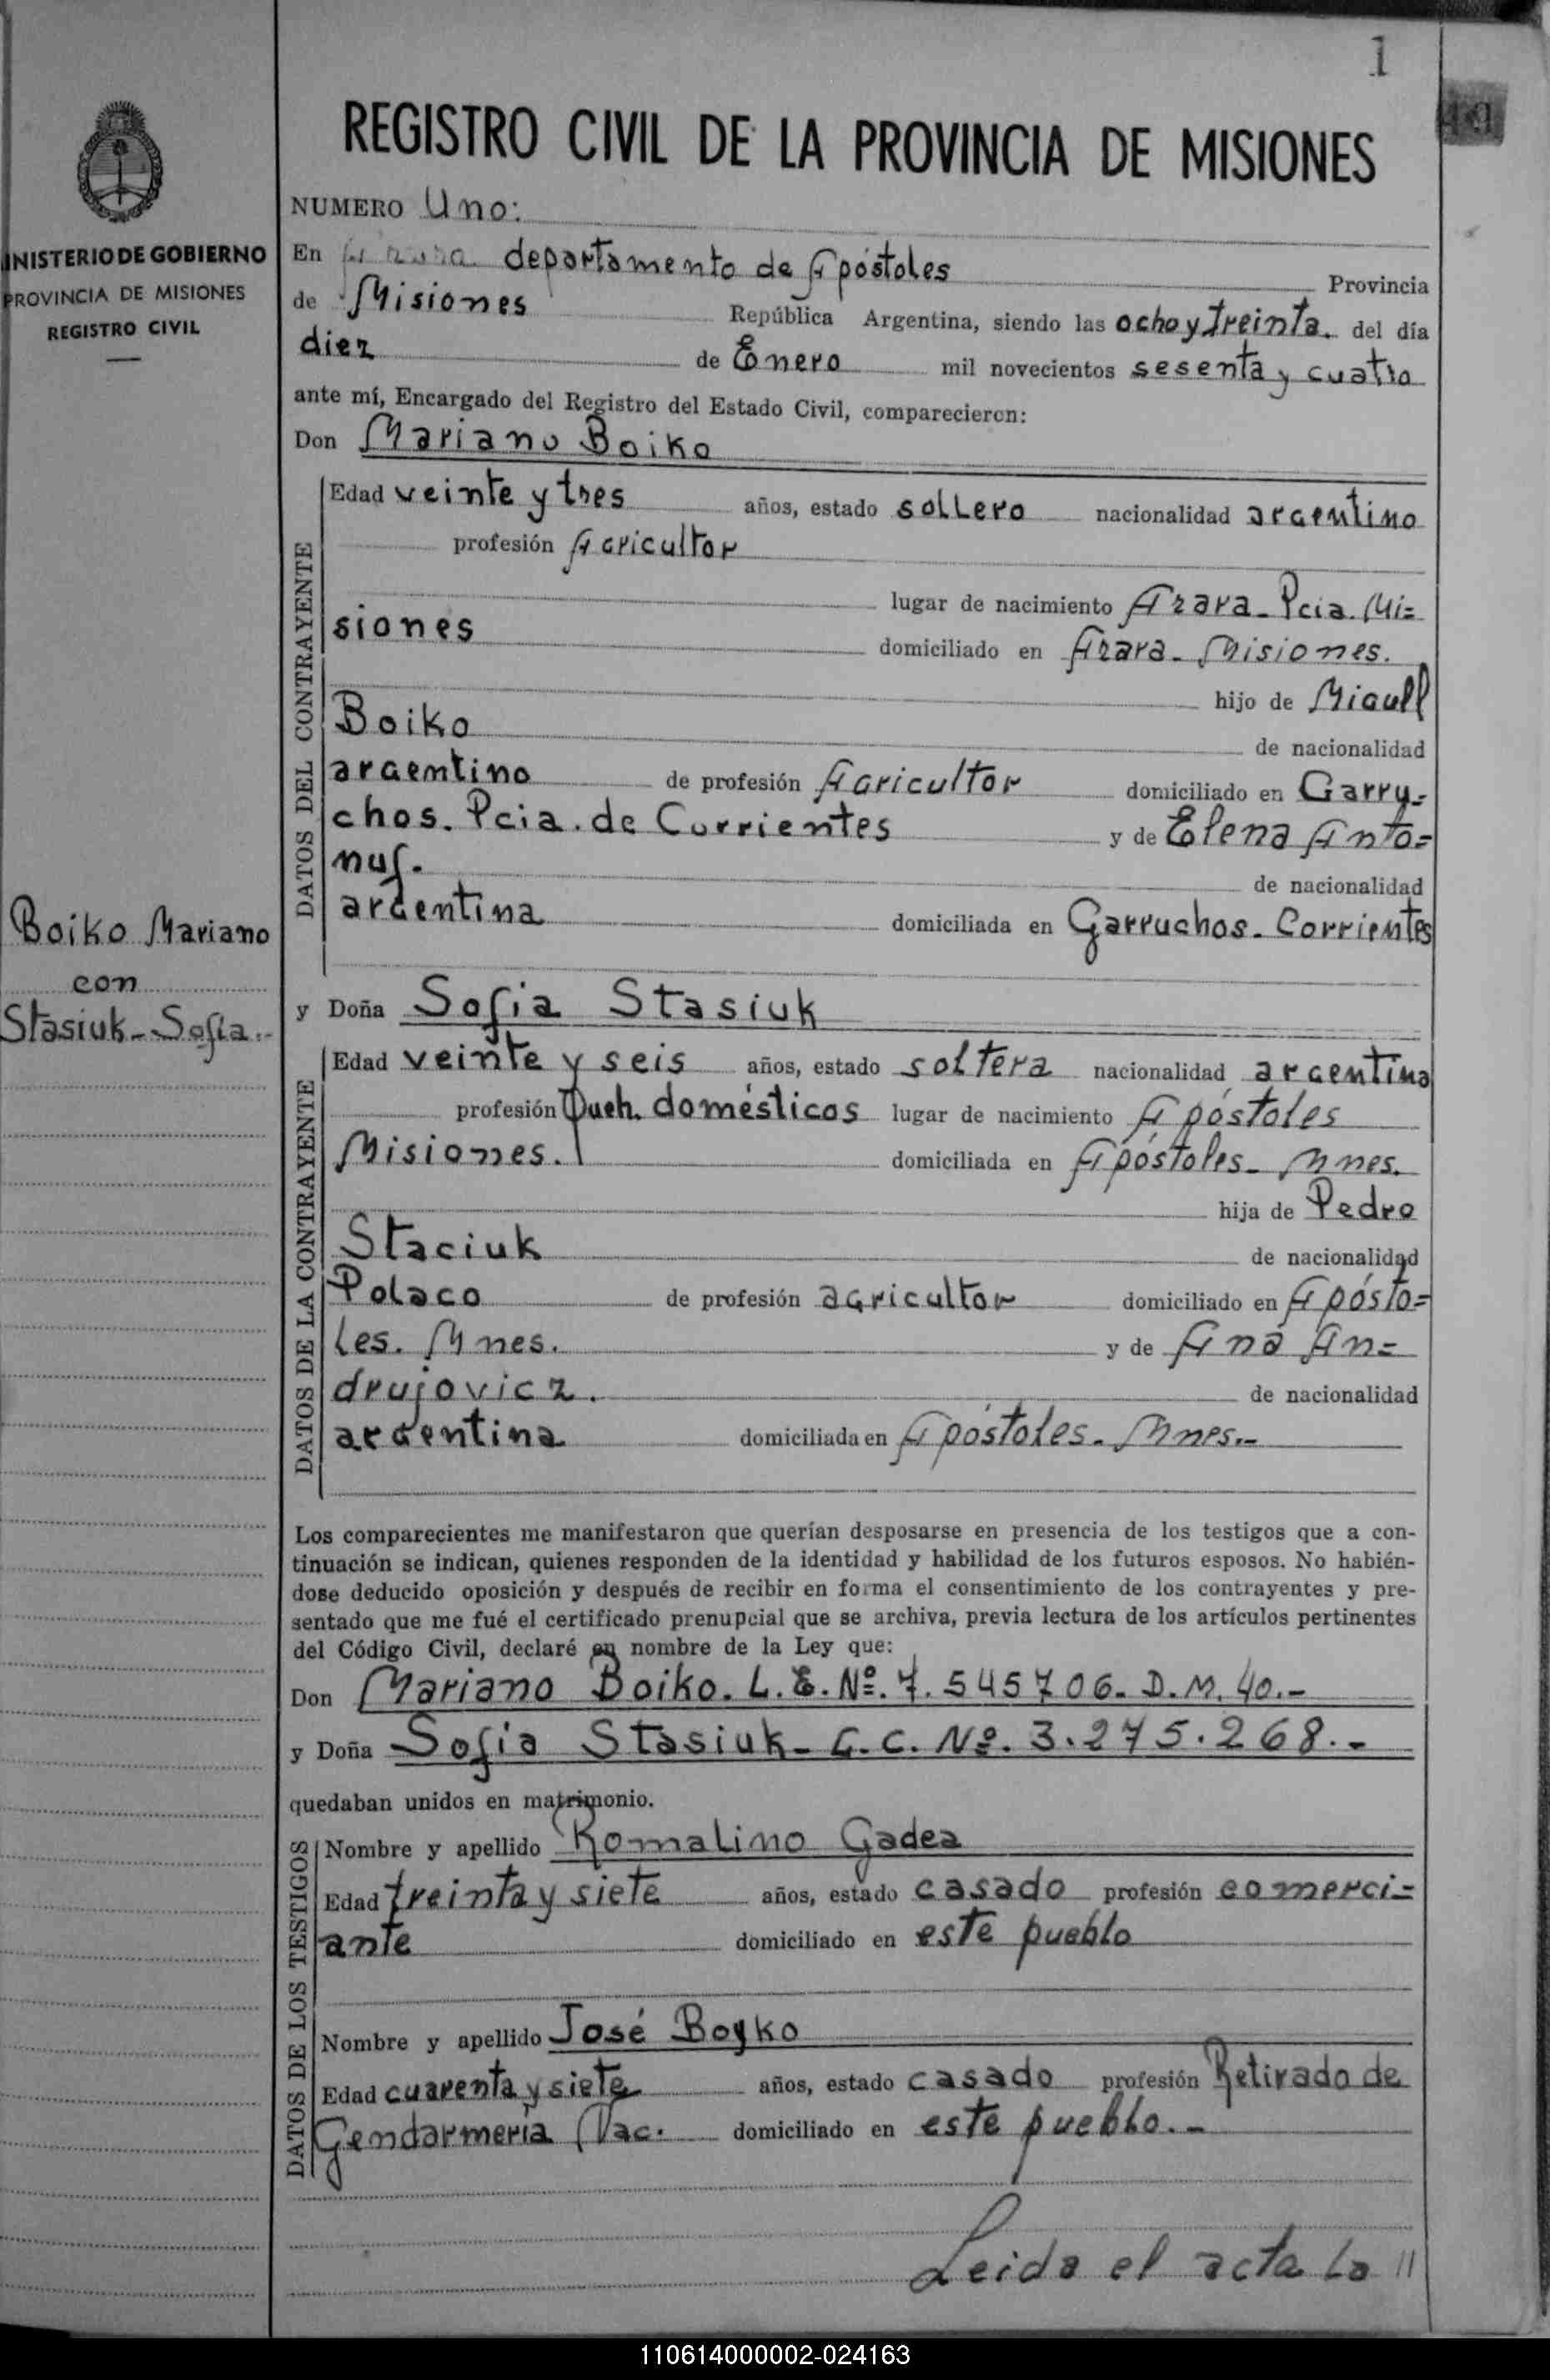 1
REGISTRO CIVIL DE LA PROVINCIA DE MISIONES
MINISTERIO DE GOBIERNO
PROVINCIA DE MISIONES
REGISTRO CIVIL
NUMERO Uno:
En departamento de Apóstoles Provincia
de Misiones República Argentina, siendo las ocho y treinta. del día
diez de Enero mil novecientos sesenta y cuatro
ante mí, Encargado del Registro del Estado Civil, comparecieron:
Don Mariano Boiko
DATOS DEL CONTRAYENTE
Edad veinte y tres años, estado soltero nacionalidad argentino
profesión Agricultor
lugar de nacimiento Azara - Pcia. Mi=
siones domiciliado en Azara - Misiones.
hijo de Miguel
Boiko de nacionalidad
argentino de profesión Agricultor domiciliado en Garru=
chos. Pcia. de Corrientes y de Elena Anto=
niuf. de nacionalidad
argentina domiciliada en Garruchos - Corrientes
Boiko Mariano
con
Stasiuk - Sofia.-
y Doña Sofia Stasiuk
DATOS DE LA CONTRAYENTE
Edad veinte y seis años, estado soltera nacionalidad argentina
profesión Queh. domésticos lugar de nacimiento Apóstoles
Misiones. domiciliada en Apóstoles - Mnes.
hija de Pedro
Staciuk de nacionalidad
Polaco de profesión agricultor domiciliado en Apósto=
les. Mnes. y de Ana An=
drujovicz. de nacionalidad
argentina domiciliada en Apóstoles. Mnes.-
Los comparecientes me manifestaron que querían desposarse en presencia de los testigos que a con-
tinuación se indican, quienes responden de la identidad y habilidad de los futuros esposos. No habién-
dose deducido oposición y después de recibir en forma el consentimiento de los contrayentes y pre-
sentado que me fué el certificado prenupcial que se archiva, previa lectura de los artículos pertinentes
del Código Civil, declaré en nombre de la Ley que:
Don Mariano Boiko. L.E. Nº. 7.545706. D.M. 40.-
y Doña Sofia Stasiuk - C.C. Nº. 3.275.268.-
quedaban unidos en matrimonio.
DATOS DE LOS TESTIGOS
Nombre y apellido Romalino Gadea
Edad treinta y siete años, estado casado profesión comerci=
ante domiciliado en este pueblo
Nombre y apellido José Boyko
Edad cuarenta y siete años, estado casado profesión Retirado de
Gendarmería Nac. domiciliado en este pueblo.-
Leida el acta la //
110614000002-024163